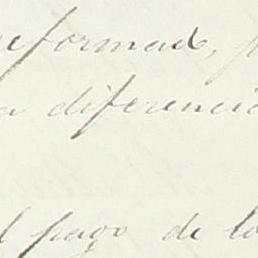 reformado, p
a diferencia
l pago de lo